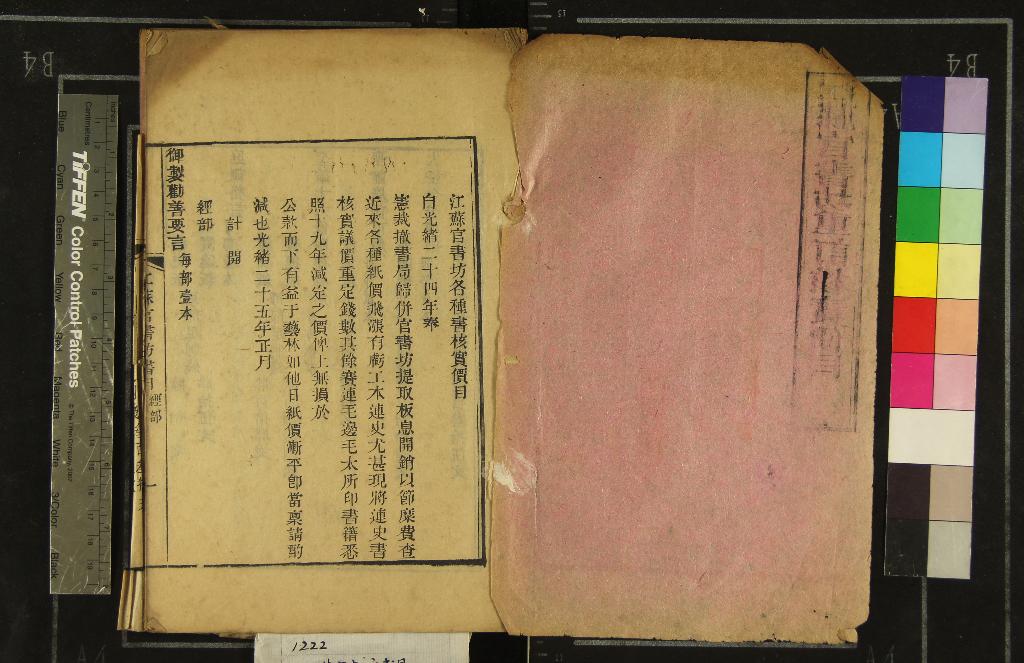 江蘇官書坊各種書核實價目
自光緒二十四年奉
憲裁撤書局歸併官書坊提取板息開銷以節糜費查
近來各種紙價飛漲有虧工本連史尤甚現將連史書
核實議價重定錢數其餘賽連毛邊毛太所印書籍悉
照十九年減定之價俾上無損於
公款而下有益于藝林如他日紙價漸平卽當稟請酌
減也光緒二十五年正月
計開
經部
御製勸善要言 每部壹本
江蘇官書坊書目 經部 一
TIFFEN Color Control Patches
© The Tiffen Company, 2007
Centimetres
Inches
Blue
Cyan
Green
Yellow
Red
Magenta
White
3/Color
Black
B4
B4
1222